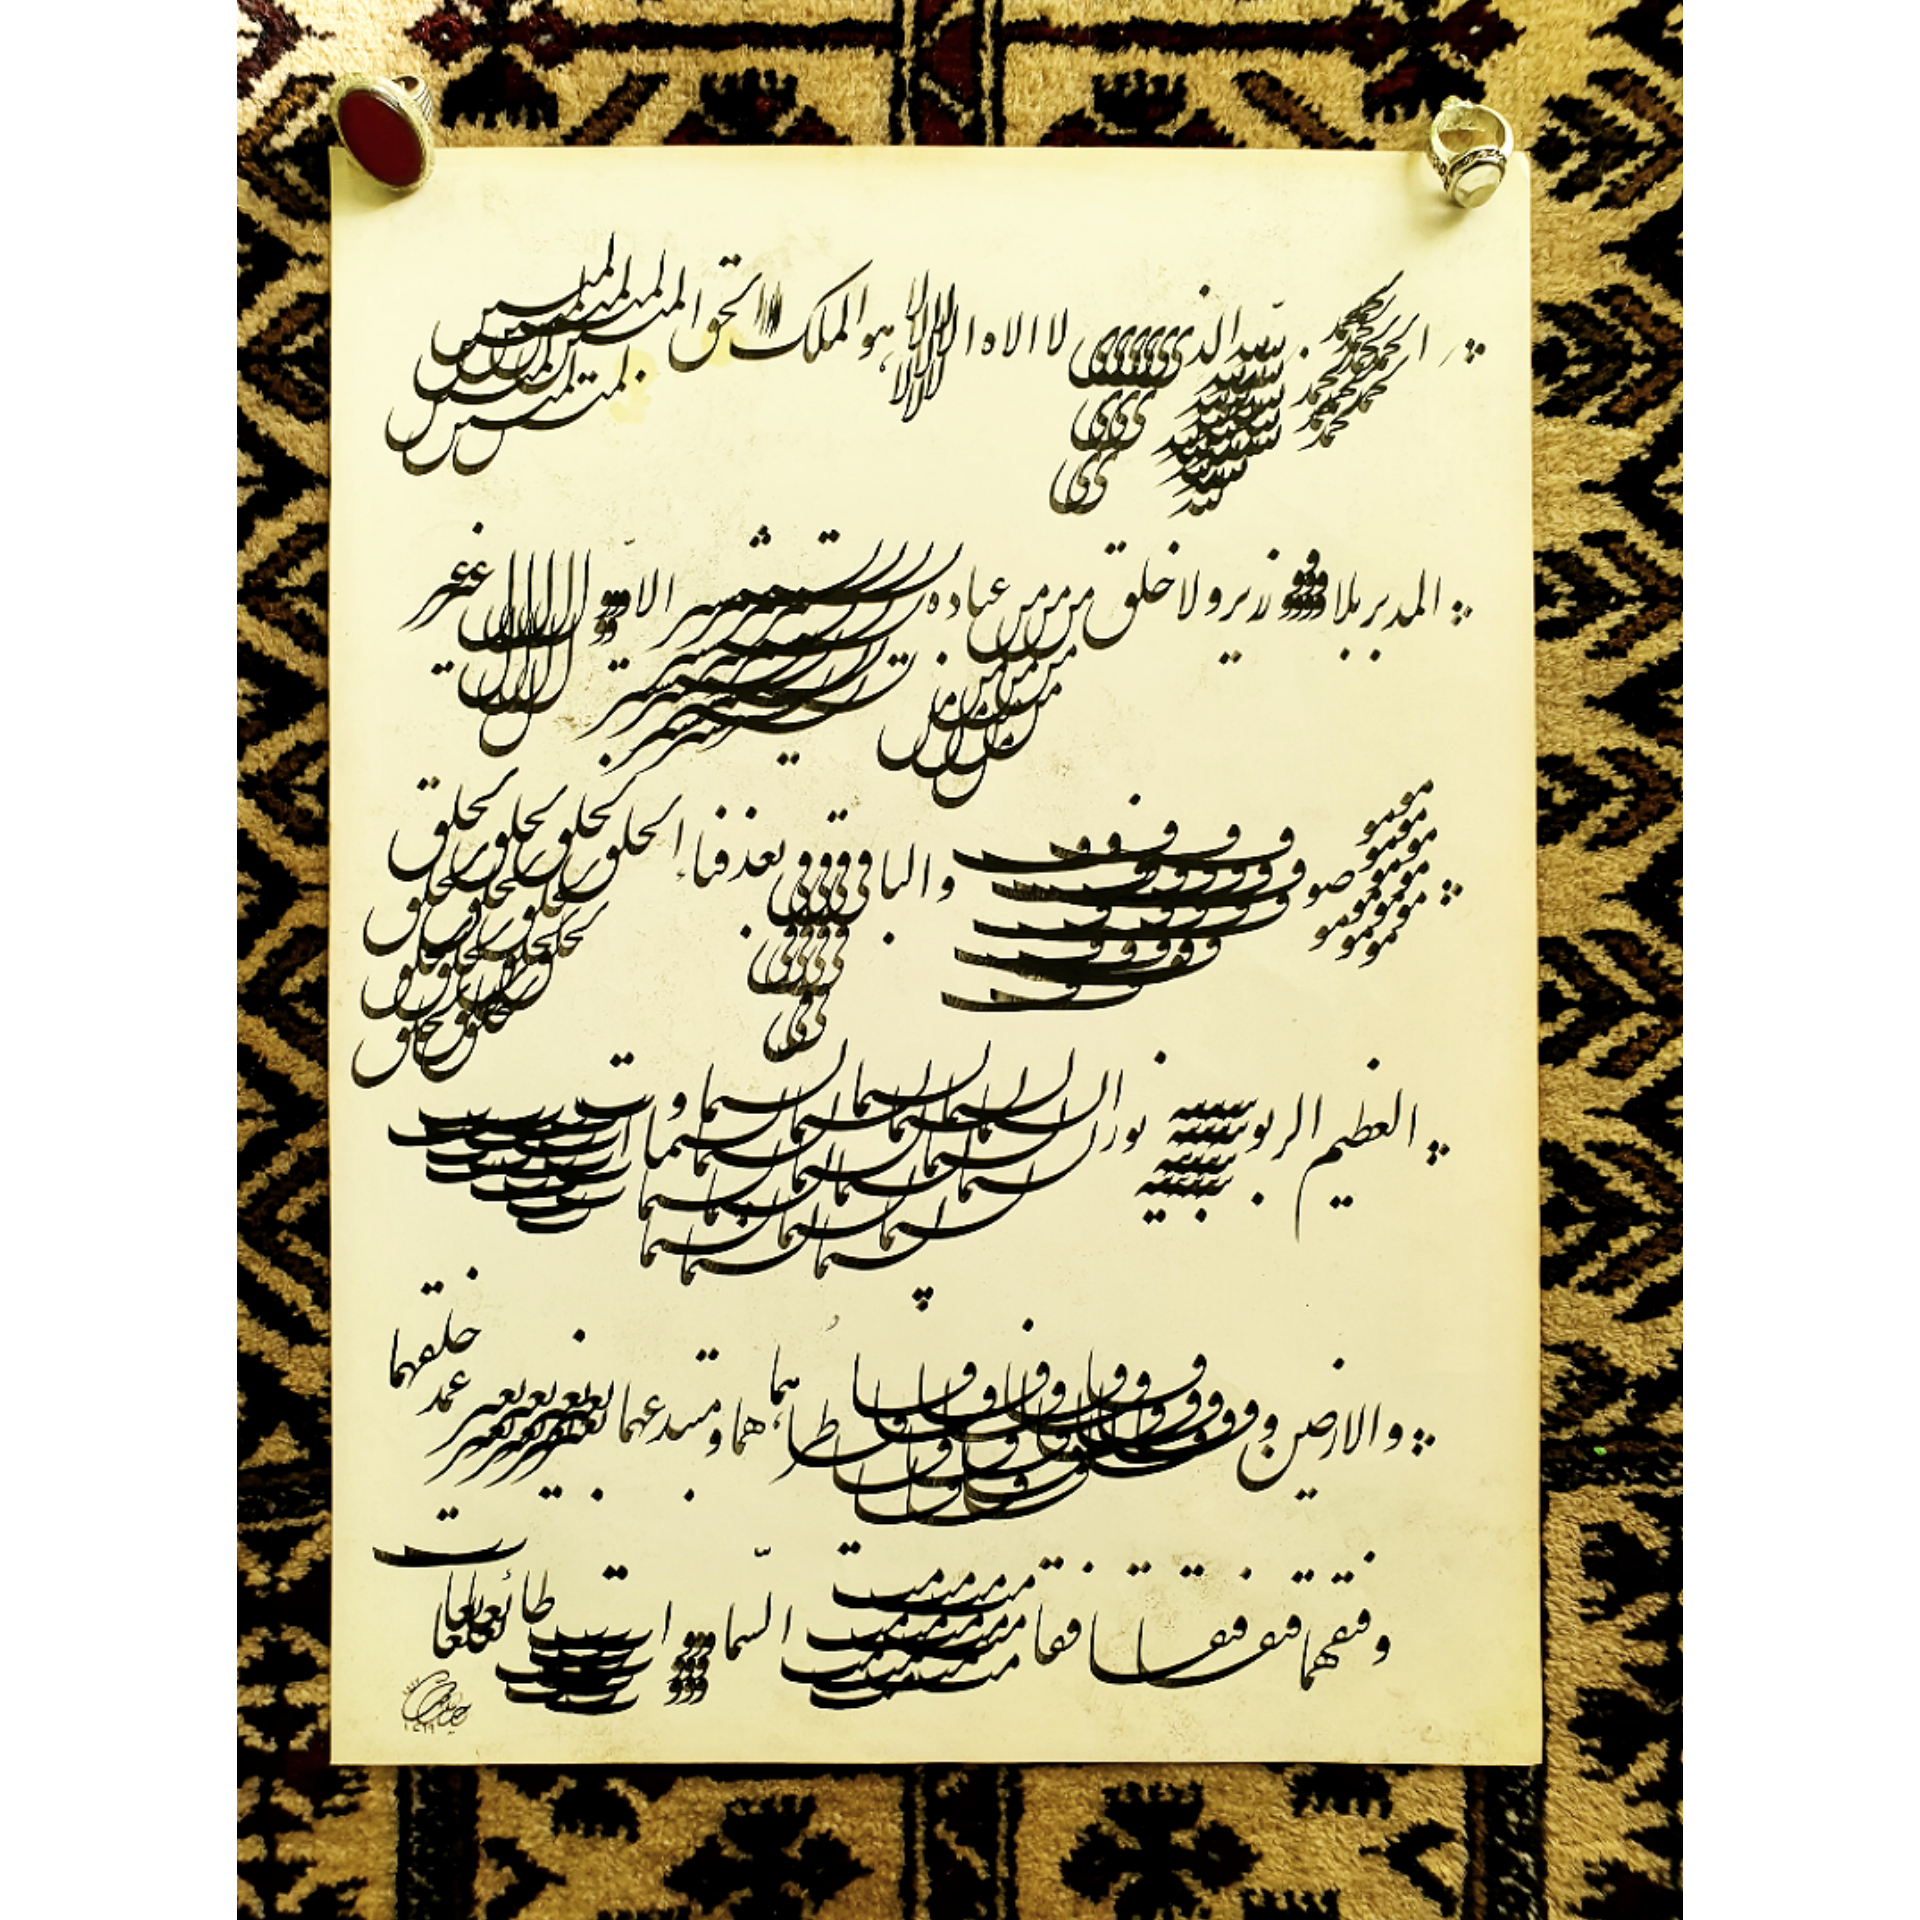 الحمد لله الذی لا اله الا هو الملک الحق المبین
المدبر بلا وزیر ولا خلق من عباده یستشیر الاول غیر
موصوف والباقی بعد فناء الخلق
العظیم الربوبیه نور السماوات
والارضین وفاطرهما ومبتدعهما بغیر عمد خلقهما
وفتقهما فتقا فقامت السماوات طائعات